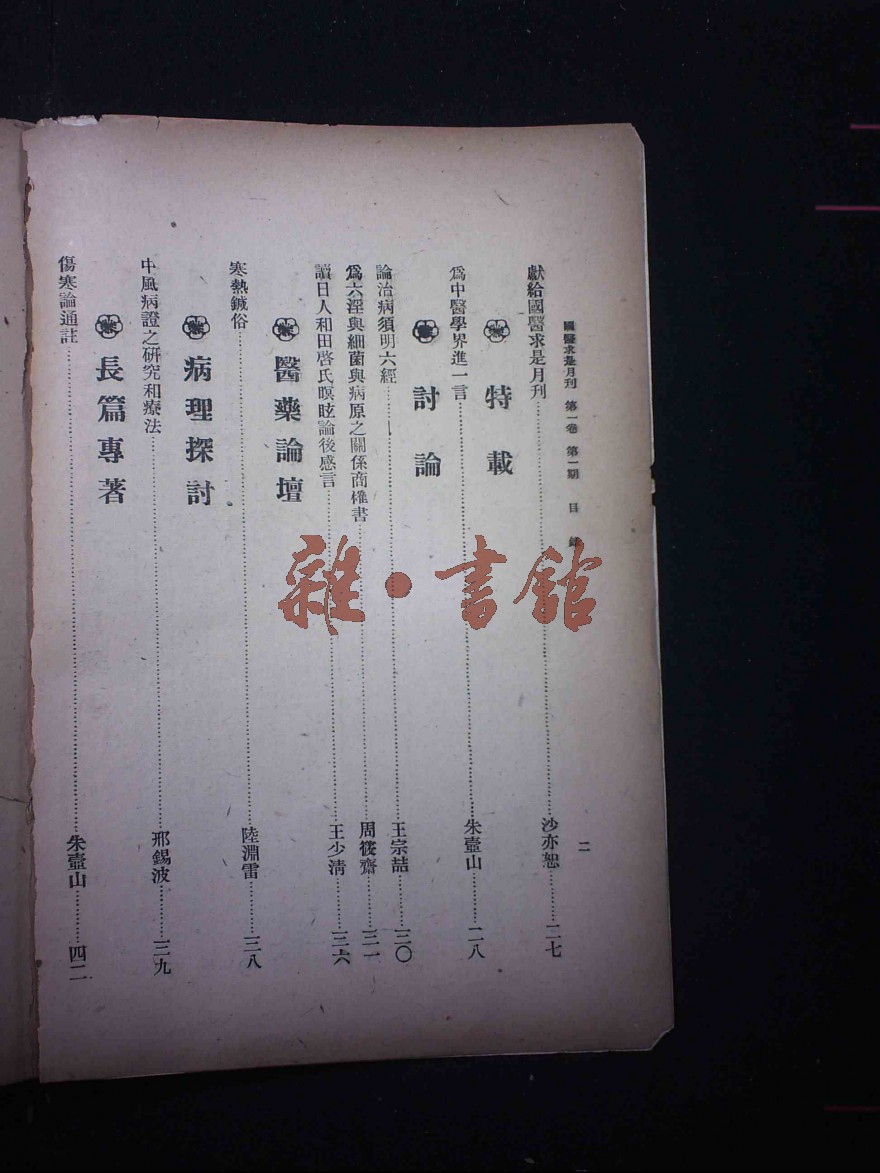 國醫求是月刊 第一卷 第一期 目錄 二
獻給國醫求是月刊……沙亦恕……二七
特載
爲中醫學界進一言……朱壺山……二八
討論
論治病須明六經……王宗喆……三〇
爲六淫與細菌與病原之關係商榷書……周筱齋……三一
讀日人和田啓氏瞑眩論後感言……王少淸……三六
醫藥論壇
寒熱鍼俗……陸淵雷……三八
病理探討
中風病證之硏究和療法……邢錫波……三九
長篇專著
傷寒論通註……朱壺山……四二
雜·書館